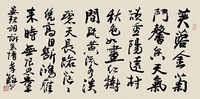 芙蓉金菊
鬥馨香天氣
欲重陽遠村
秋色如畫紅樹
間疏黃流水淡
碧天長路茫茫
憑高目斷鴻雁
來時無限思量
晏殊詞訴衷情